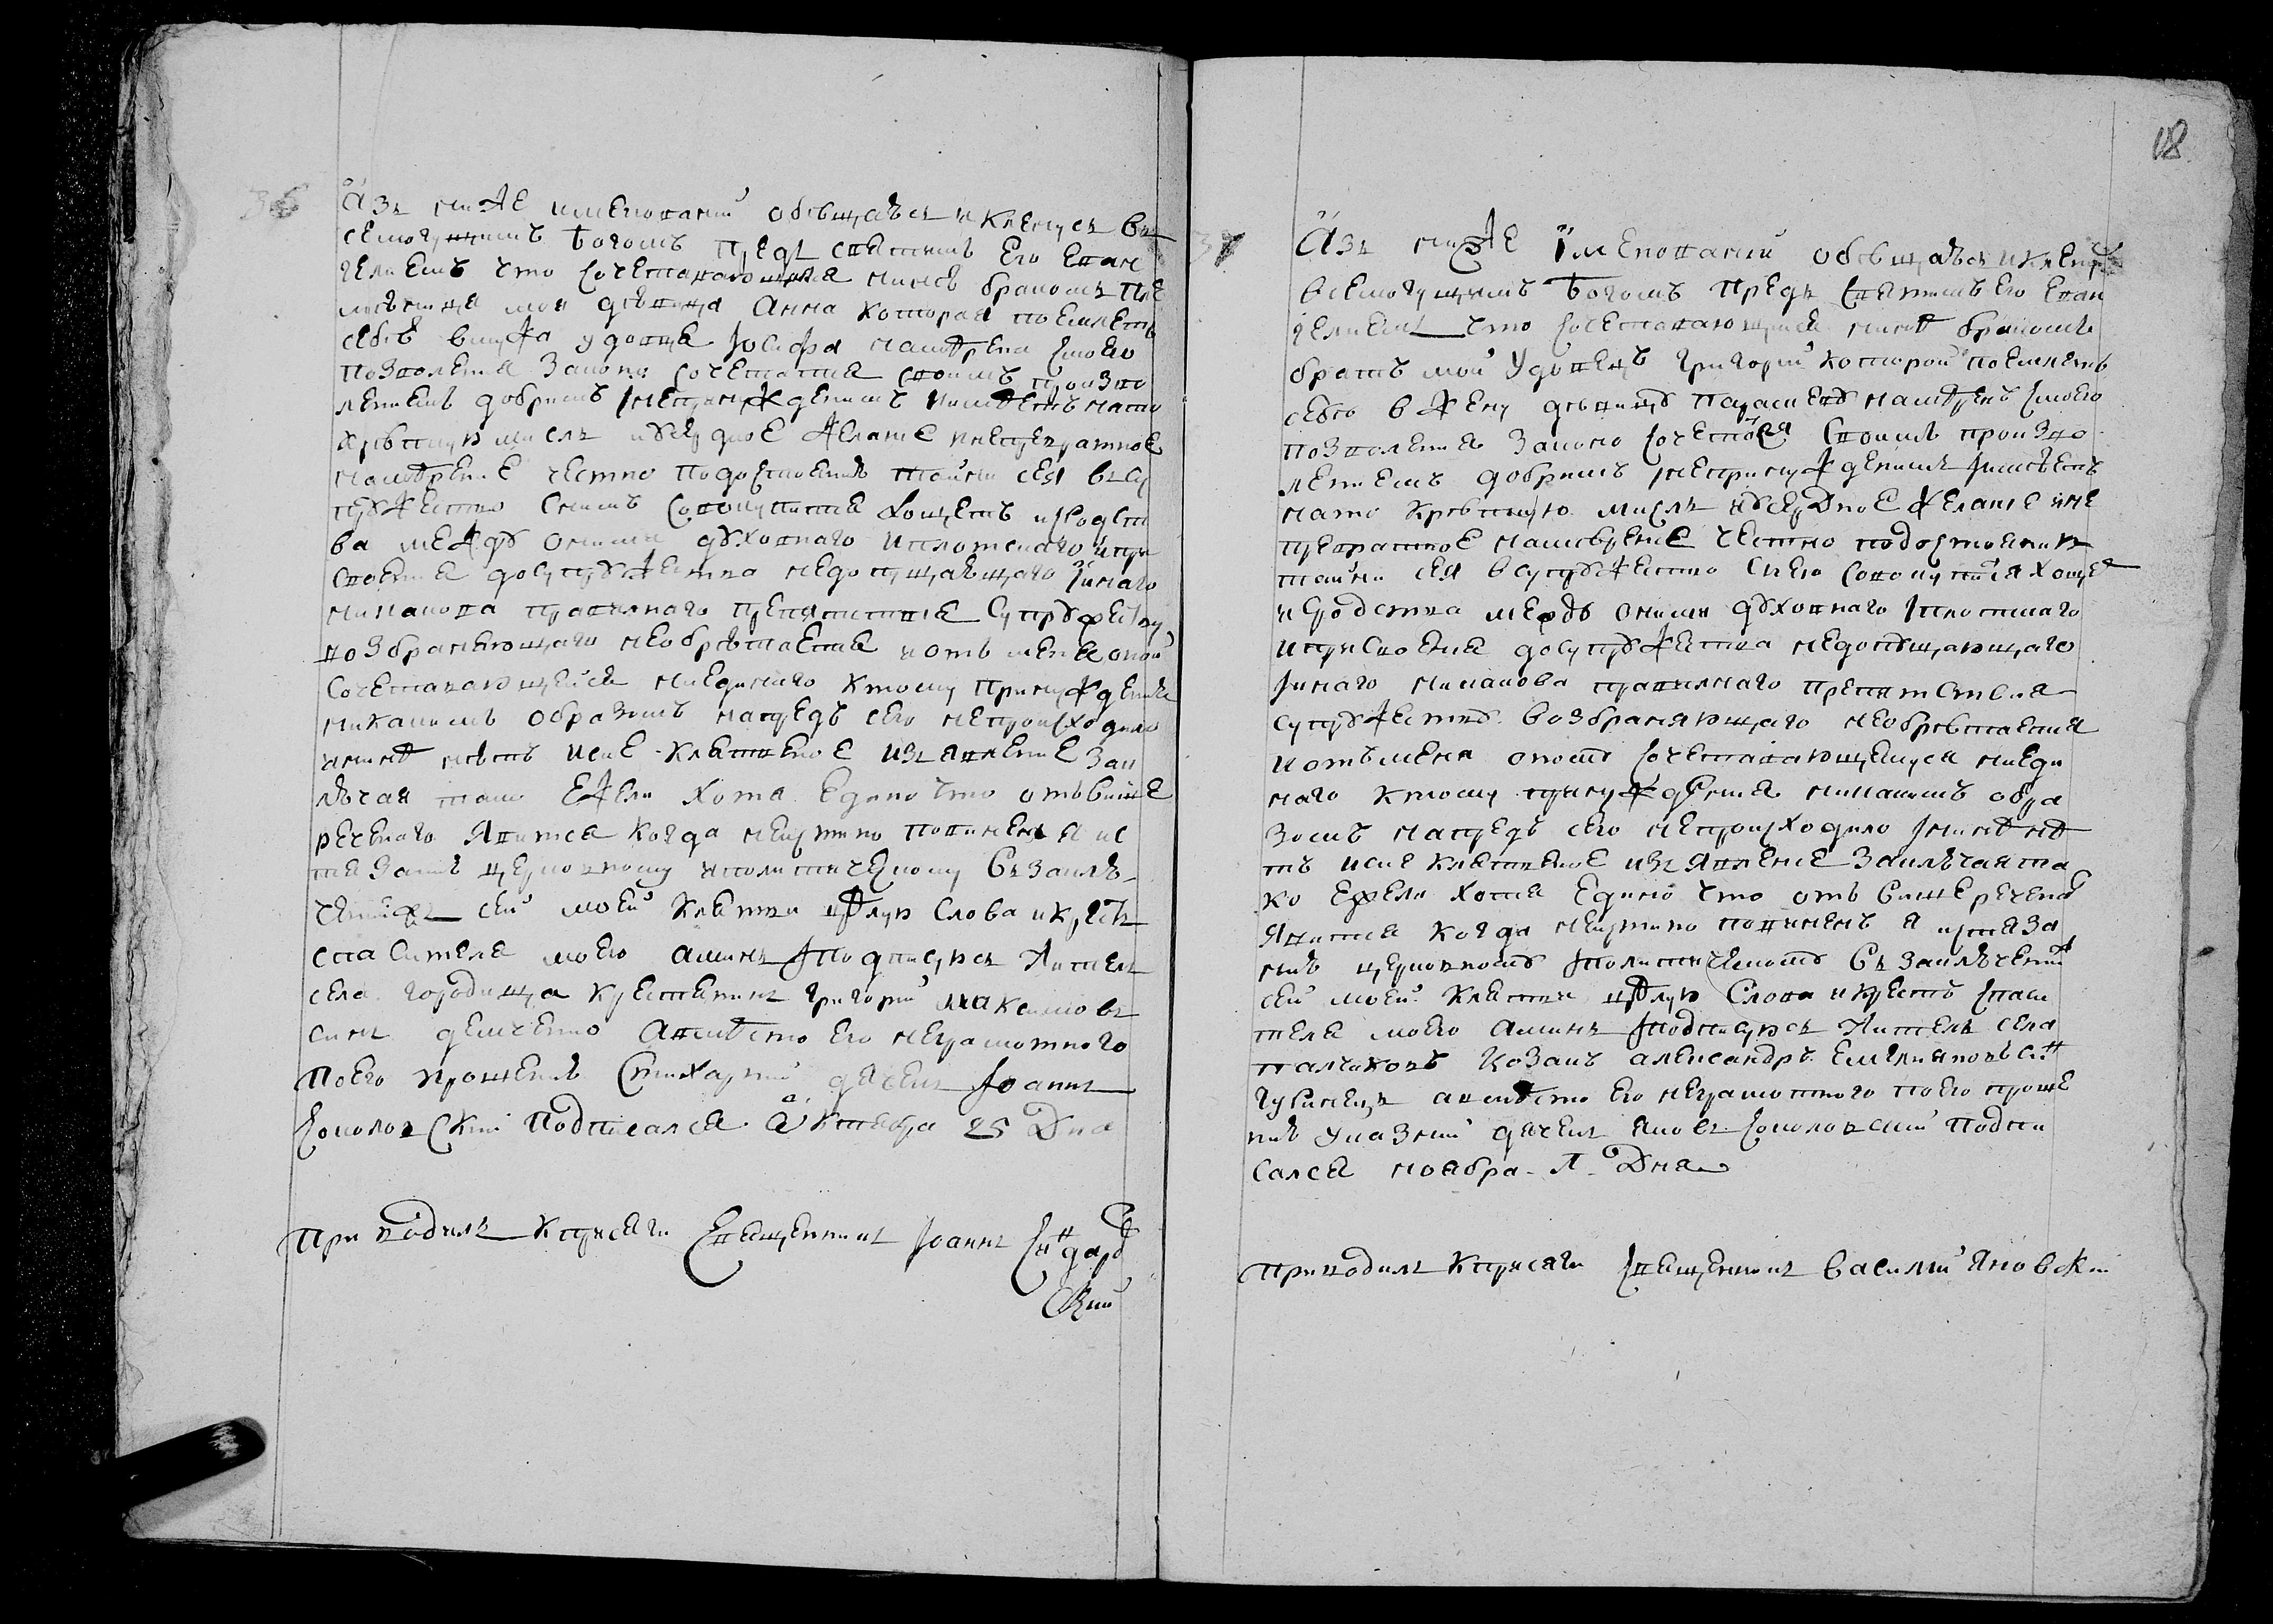 36
Азъ нижеименованний обѣщаюсь и кленусь в
семогущимъ Богомъ предъ святимъ его еван
гелиемъ что сочетавающаяся нинѣ бракомъ пле
мѣнница моя дѣвица Анна которая поемлетъ
себѣ в мужа удовца Иосифа намѣрена з моего
позволения закону сочетатися своимъ произво
лениемъ добримъ и непринужденимъ и имѣетъ на то
крѣпкую мисль и усердное желание и непревратное
намѣрение честно по достоению тайни сея въ су
пружество с нимъ совокупитися хощетъ и сродст
ва между оними духовнаго и плотскаго и при
своения до супружества недопущающаго и инаго
никакова правилнаго препятствия супружеству
возбраняющаго необрѣтается и отъ мене оной
сочетавающейся ниединаго к тому принуждения
никакимъ образомъ напредъ сего непроисходило
и нинѣ нѣтъ и сие клятвенное изъявление закл
ючая тако ежели хотя едино что отъ више
реченнаго явится когда неистинно повиненъ я ис
тязанию церковному и политическому въ заклю
чение же сей моей клятви цѣлую слова и крестъ
спасителя моего аминь и подписуюсь житель
села Городища крестянинъ Григорий Максимовъ
синъ Демченко а вмѣсто его неграмотного
по его прошению стихарний дячекъ Иоаннъ
Соколовский подписался Октября 25 дня
приводилъ к присяги священникъ Иоаннъ
ский
118
37
Азъ нижеименованний обѣщаюсь и кленусь
всемогущимъ Богомъ предъ святимъ его еван
гелиемъ что сочетавающийся нинѣ бракомъ
братъ мой удовецъ Григорий которой поемлетъ
себѣ в жену дѣвицу Параскеву намѣренъ з моего
позволения закону сочетатися своимъ произво
лениемъ добримъ и непринужденимъ и имѣетъ
на то крѣпкую мисль и усердное желание и не
превратное намѣрение честно по достоянию
тайни сея в супружество с нею совокупится хощет
и сродства между оними духовнаго и плотскаго
и присвоения до супружества недопущающаго
и инаго никакова правилнаго препятствия
супружеству возбраняющаго необрѣтается
и отъ мене оному сочетавающемуся ниеди
наго к тому принуждения никакимъ обра
зомъ напредъ сего непроисходило и нинѣ нѣ
тъ и сие клятвенное изъявление заключая та
ко ежели хотя едино что отъ вишереченного
явится когда неистинно повиненъ я истяза
нию церковному и политическому въ заключение
сей моей клятви цѣлую слова и крестъ спаси
теля моего аминь и подписуюсь житель села
козакъ Александръ Емелияновъ синъ
а вмѣсто его неграмотного по его проше
нию указний дячекъ Яковъ Соколовский подпи
сался ноября Л Дня
приводилъ к присяги священникъ Василий Яновский